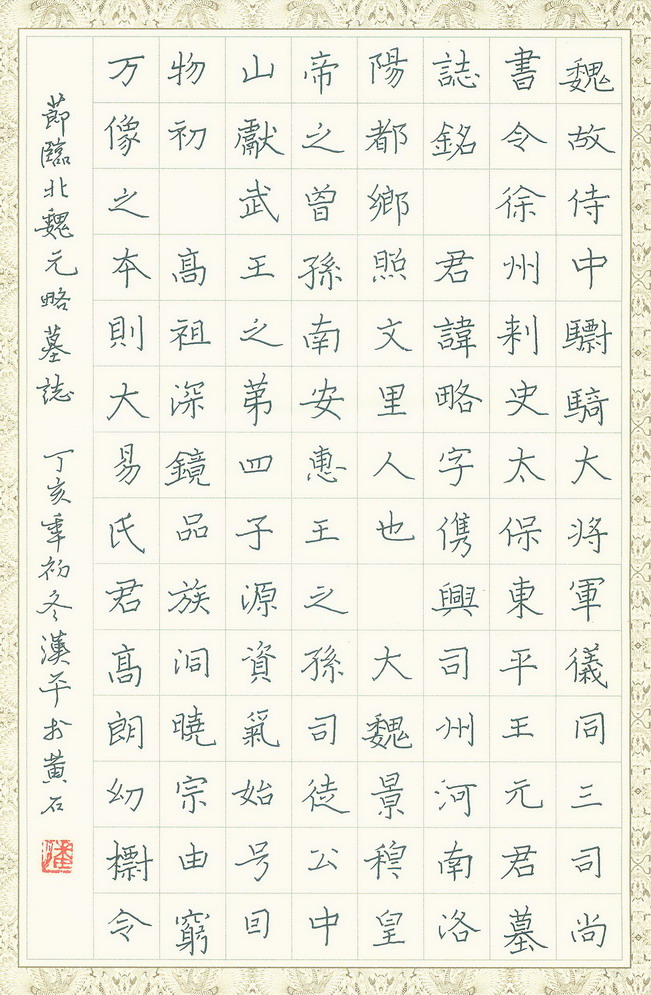 魏故侍中驃騎大将軍儀同三司尚
書令徐州刾史太保東平王元君墓
誌銘 君諱略字儁興司州河南洛
陽都鄉照文里人也 大魏景穆皇
帝之曾孫南安惠王之孫司徒公中
山獻武王之苐四子源資氣始号囙
物初 髙祖深鏡品族洞曉宗由窮
万像之夲則大易氏君髙朗幼標令
節臨北魏元略墓誌 丁亥年初冬漢平於黄石
潘